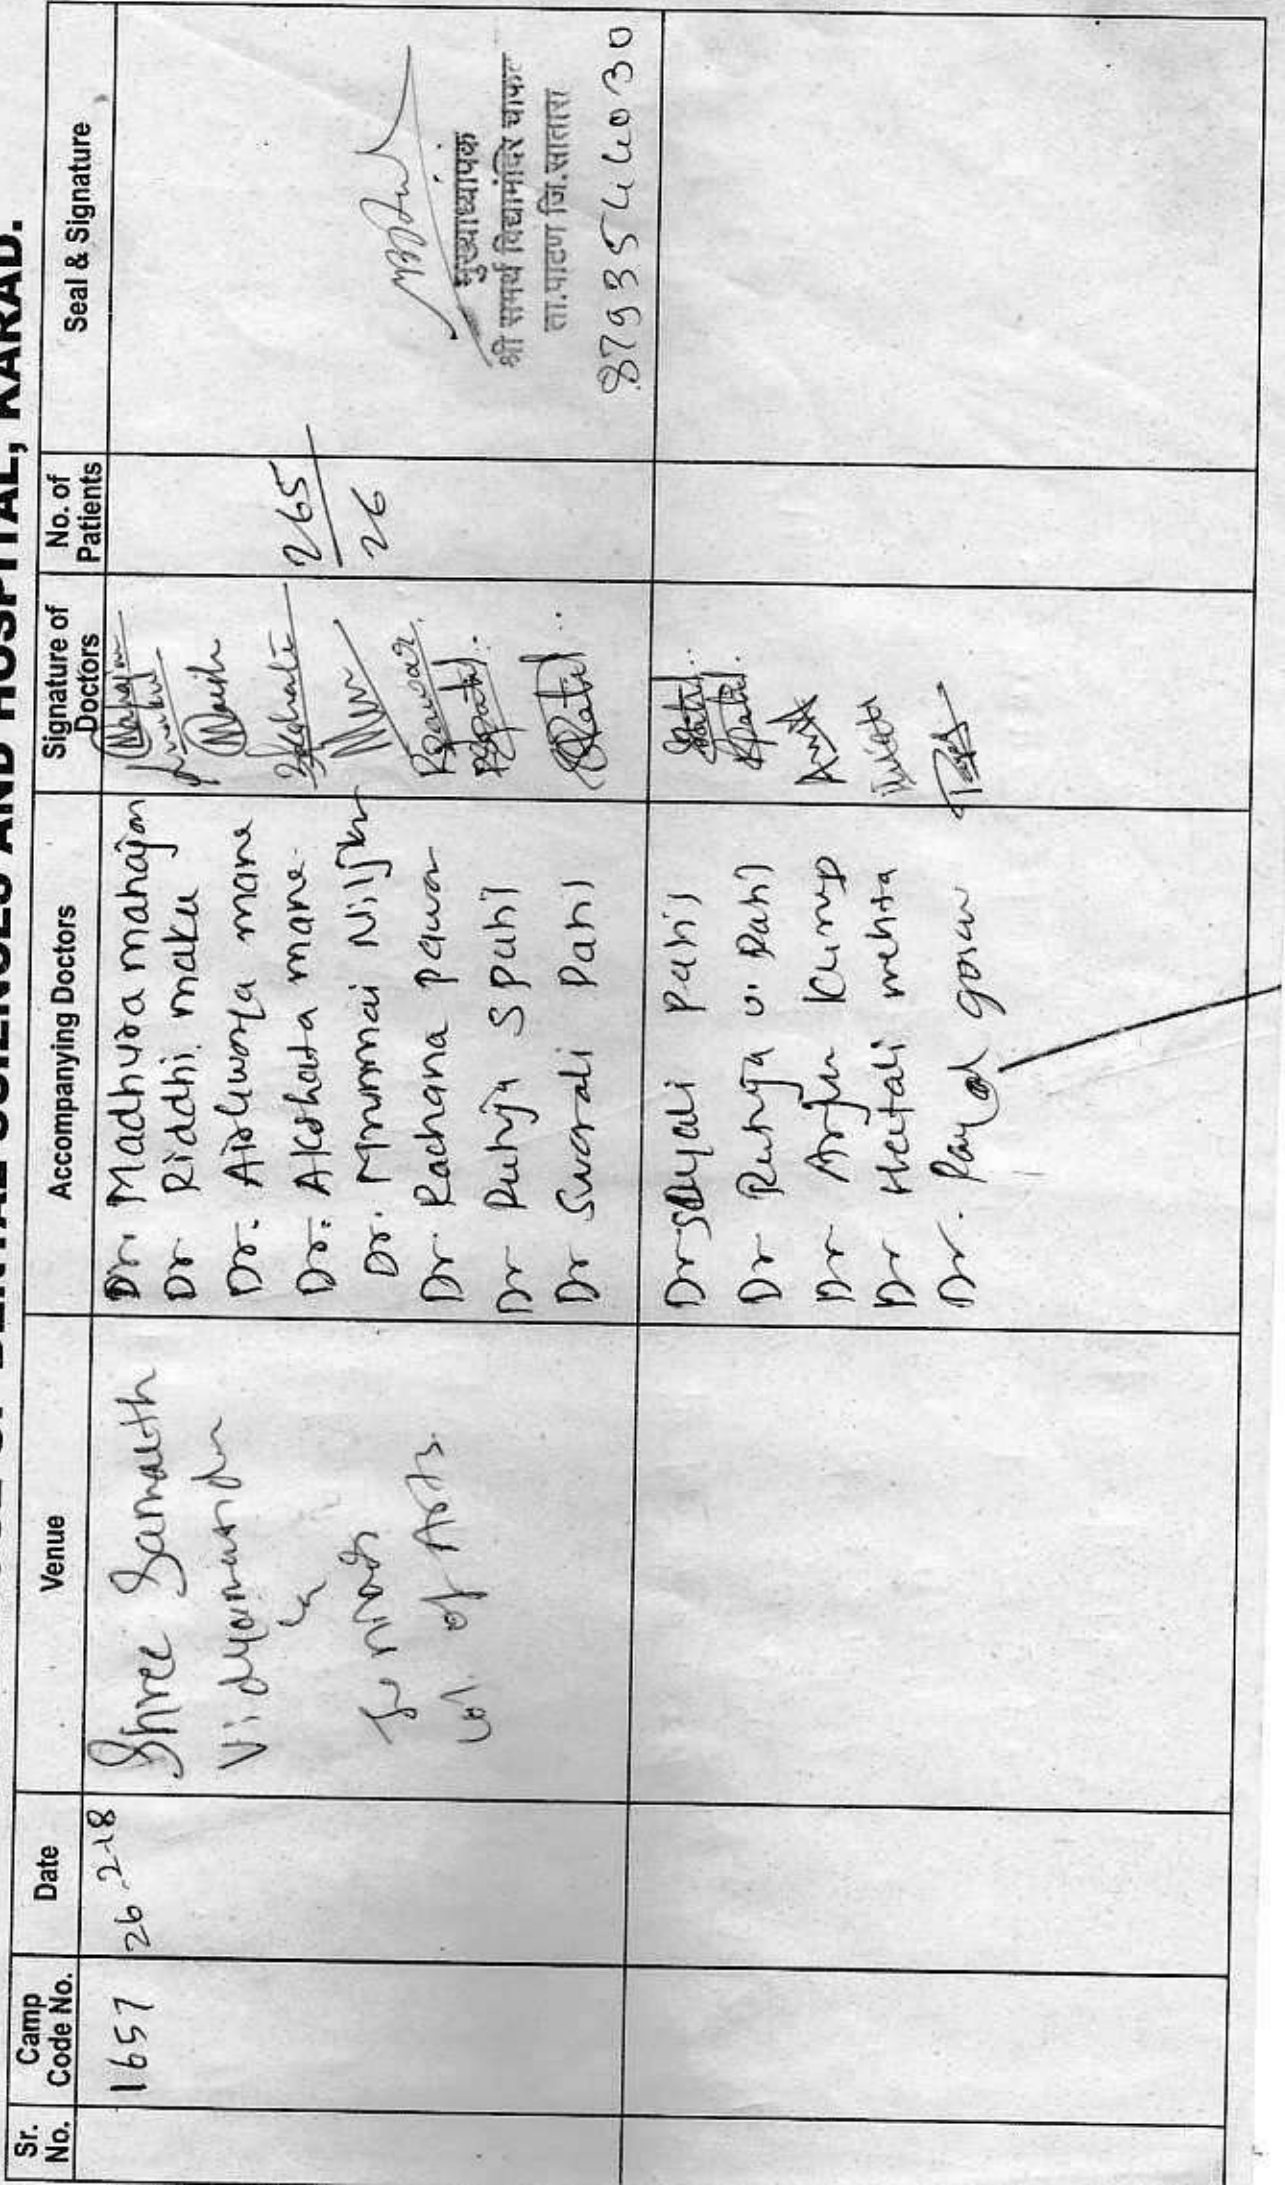 DENTAL SCIENCES AND HOSPITAL, KARAD.
Sr. No.
Camp Code No.
Date
Venue
Accompanying Doctors
Signature of Doctors
No. of Patients
Seal & Signature
1657
26-2-18
Shree Samarth
Vidyamandir
of Arts
Dr. Madhura mahajan
Dr. Riddhi maku
Dr. Aishwarya mane
Dr. Akshata mane
Dr. Mrunmai
Dr. Rachana pawar
Dr Rutuja S Patil
Dr Swarali Patil
Mahajan
265
26
मुख्याध्यापक
श्री समर्थ विद्यामंदिर चाफळ
ता.पाटण जि.सातारा
8793544030
Dr Sayali Patil
Dr Rutuja V. Patil
Dr
Dr Hetali mehta
Dr. Payal